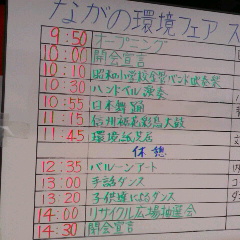 ながの環境フェア ス
9:50 オープニング
10:00 開会宣言
10:10 昭和小学校金管バンド吹奏楽
10:30 ハンドベル演奏
10:55 日本舞踊
11:15 信州
11:45 環境紙芝居
休憩
12:35 バルーンアート
13:00 手話ダンス
13:20 子供達によるダンス
14:00 リサイクル広場抽選会
14:30 閉会宣言